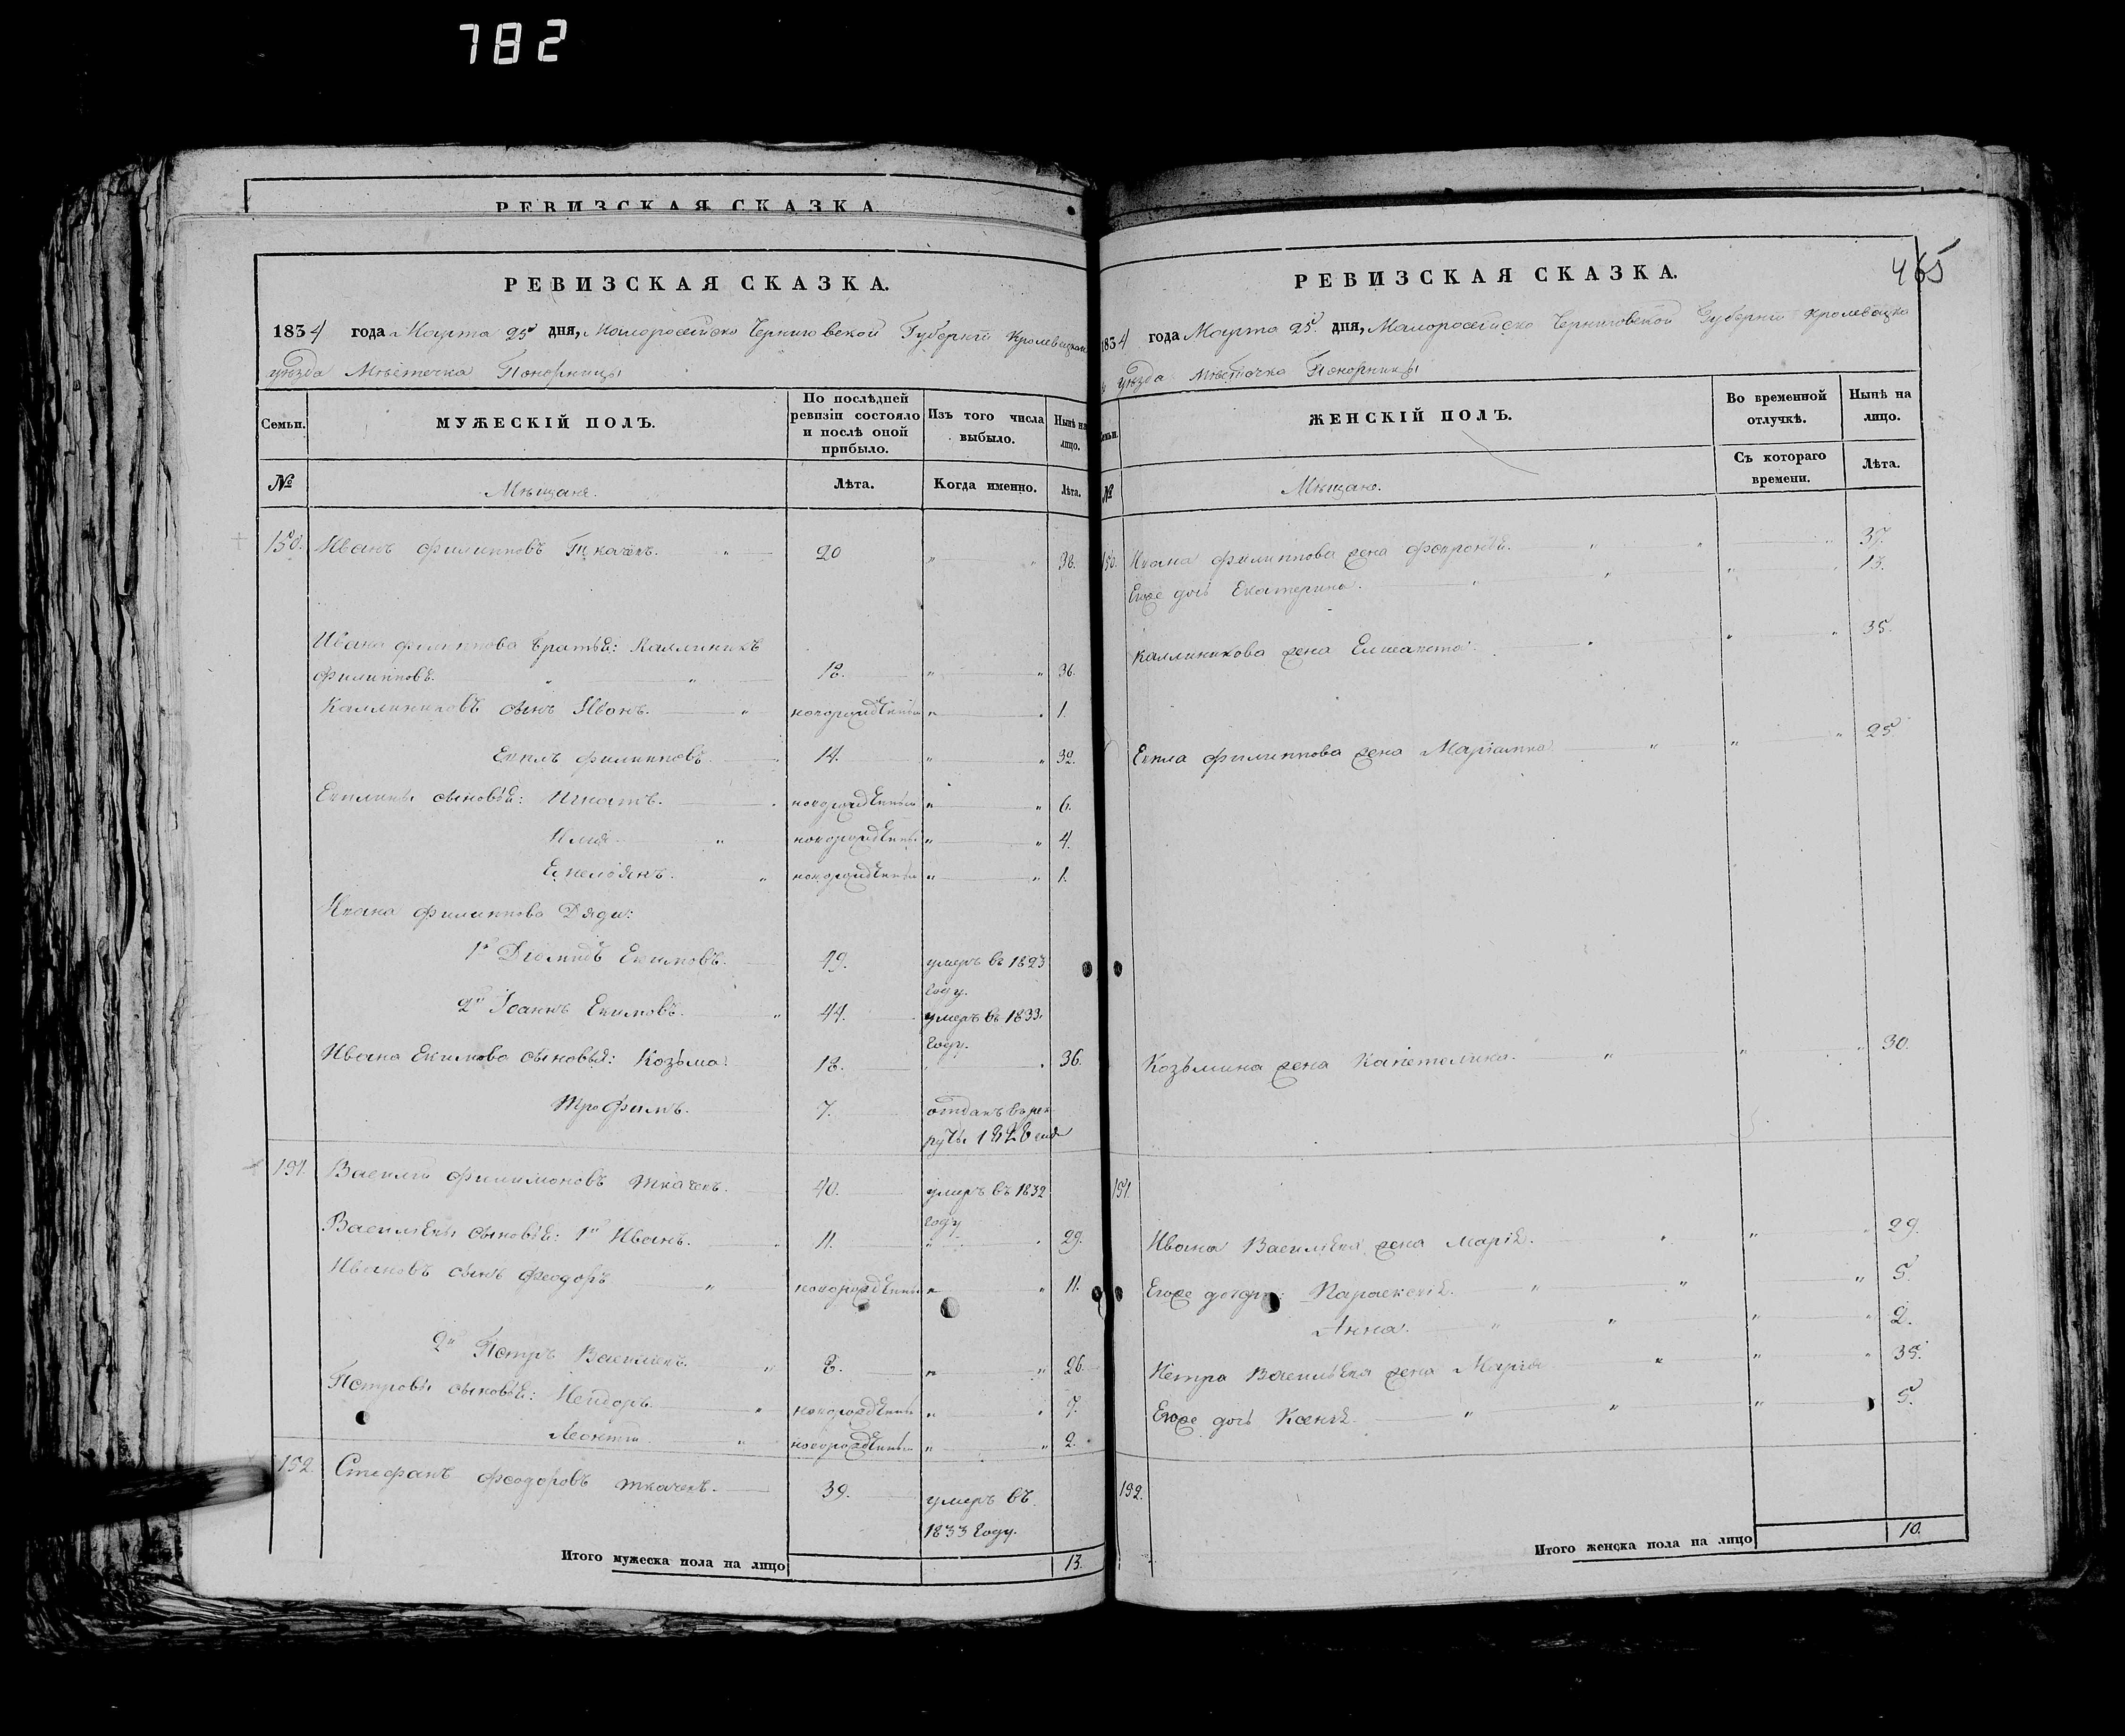 782
РЕВИЗСКАЯ СКАЗКА
РЕВИЗСКАЯ СКАЗКА.
1834 года Марта 25 дня, Малоросійско Черниговской Губерніи Кролевецкаго
уезда Местечка Понорницы
Семьи.
МУЖЕСКІЙ ПОЛЪ.
По послѣдней ревизіи состояло и послѣ оной прибыло.
Изъ того числа выбыло.
Нынѣ на лицо.
№
Мещане.
Лѣта.
Когда именно.
Лѣта.
150. Иванъ Филипповъ Ткачекъ. 20 " " 38.
Ивана Филиппова братья: Каллиникъ
Филипповъ. " " 18. " " 36.
Каллиниковъ сынъ Иванъ. " новорожденный " " 1.
Филипповъ. 14. " " 32.
сыновья: Игнатъ. новорожденный " " 6.
Илья. новорожденный " " 4.
Емельянъ. новорожденный " " 1.
Ивана Филиппова Дяди:
1й Діомидъ Екимовъ. 49. умеръ въ 1823
году.
2й Іоаннъ Екимовъ. 44. умеръ въ 1833
году.
Ивана Екимова сыновья: Козьма. 18. " " 36.
Трофимъ. 7. отданъ въ рек
руты 1828 года
151. Василий Филимоновъ Ткачекъ. 40. умеръ въ 1832
году
Васильевы сыновья: 1й Иванъ. 11. " " 29.
Ивановъ сынъ Феодоръ " новорожденный " " 11.
2й Петръ Васильевъ. " 8. " " 26.
Петровы сыновья: " новорожденный " " 7.
Леонтий " новорожденный " " 2.
152. Стефанъ Феодоровъ Ткачекъ. 39. умеръ въ
1833 году.
Итого мужеска пола на лицо 13.
465
РЕВИЗСКАЯ СКАЗКА.
1834 года Марта 25 дня, Малоросійско Черниговской Губерніи Кролевецко
уезда Местечка Понорницы
Семьи.
ЖЕНСКІЙ ПОЛЪ.
Во временной отлучкѣ.
Нынѣ на лицо.
№
Мещане.
Съ котораго времени.
Лѣта.
150. Ивана Филиппова жена " " 37.
Егоже дочь Екатерина. " " 13.
Каллиникова жена Елисавета. " " 35.
Филиппова жена Маріанна " " 25
Козьмина жена Капетолина. " " 30.
151.
Ивана Васильева жена Марія. " " 29.
Егоже дочери: Параскевія. " " 5.
Анна. " " 2.
Петра Васильева жена " " 35.
Егоже дочь Ксенія. " " 5.
152.
Итого женска пола на лицо 10.